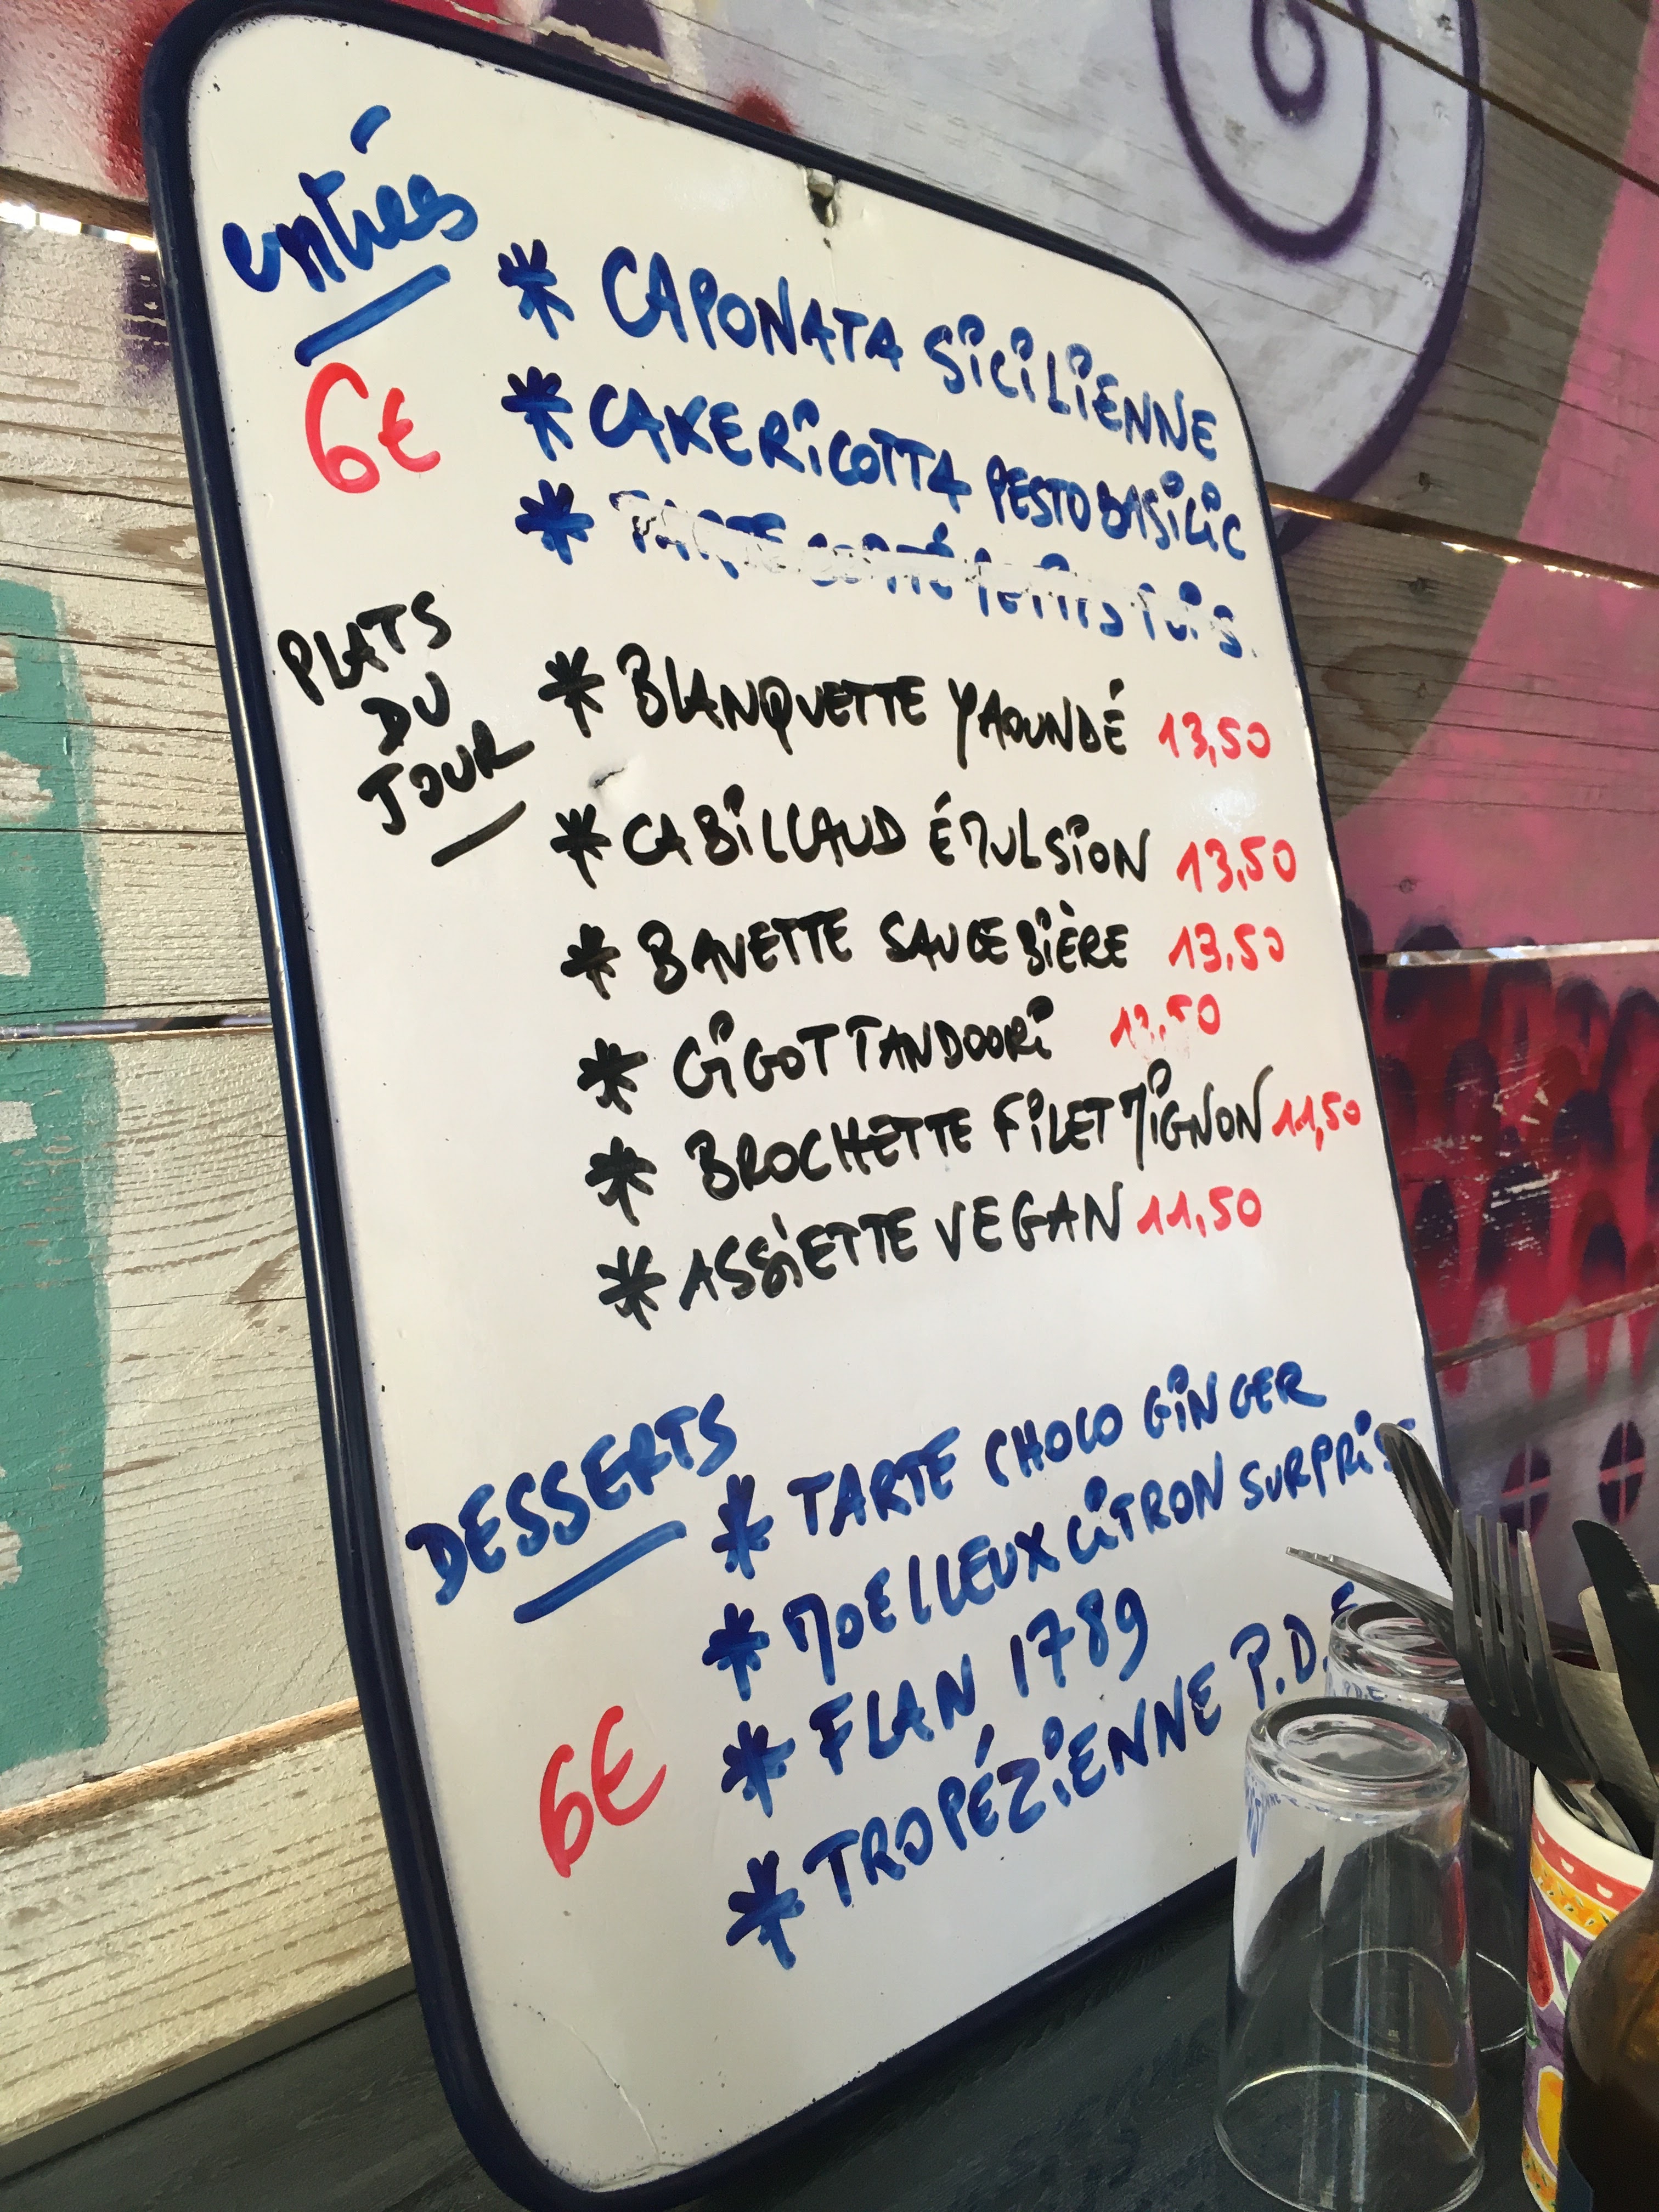 entrées
6€
* CAPONATA SiCiLiENNE
* CAKE RiCOTTA PESTO BASiLiC
* TARTE
PLATS
DU
JOUR
* BLANQUETTE YAOUNDÉ 13,50
* CABiLLAUD ÉMULSiON 13,50
* BAVETTE SAUCE BiÈRE 13,50
* GiGOT TANDOORi 13,50
* BROCHETTE FiLET MiGNON 11,50
* ASSiETTE VEGAN 11,50
DESSERTS
6€
* TARTE CHOCO GiNGER
* MOELLEUX CiTRON SURPRiSE
* FLAN 1789
* TROPÉZiENNE P.D.